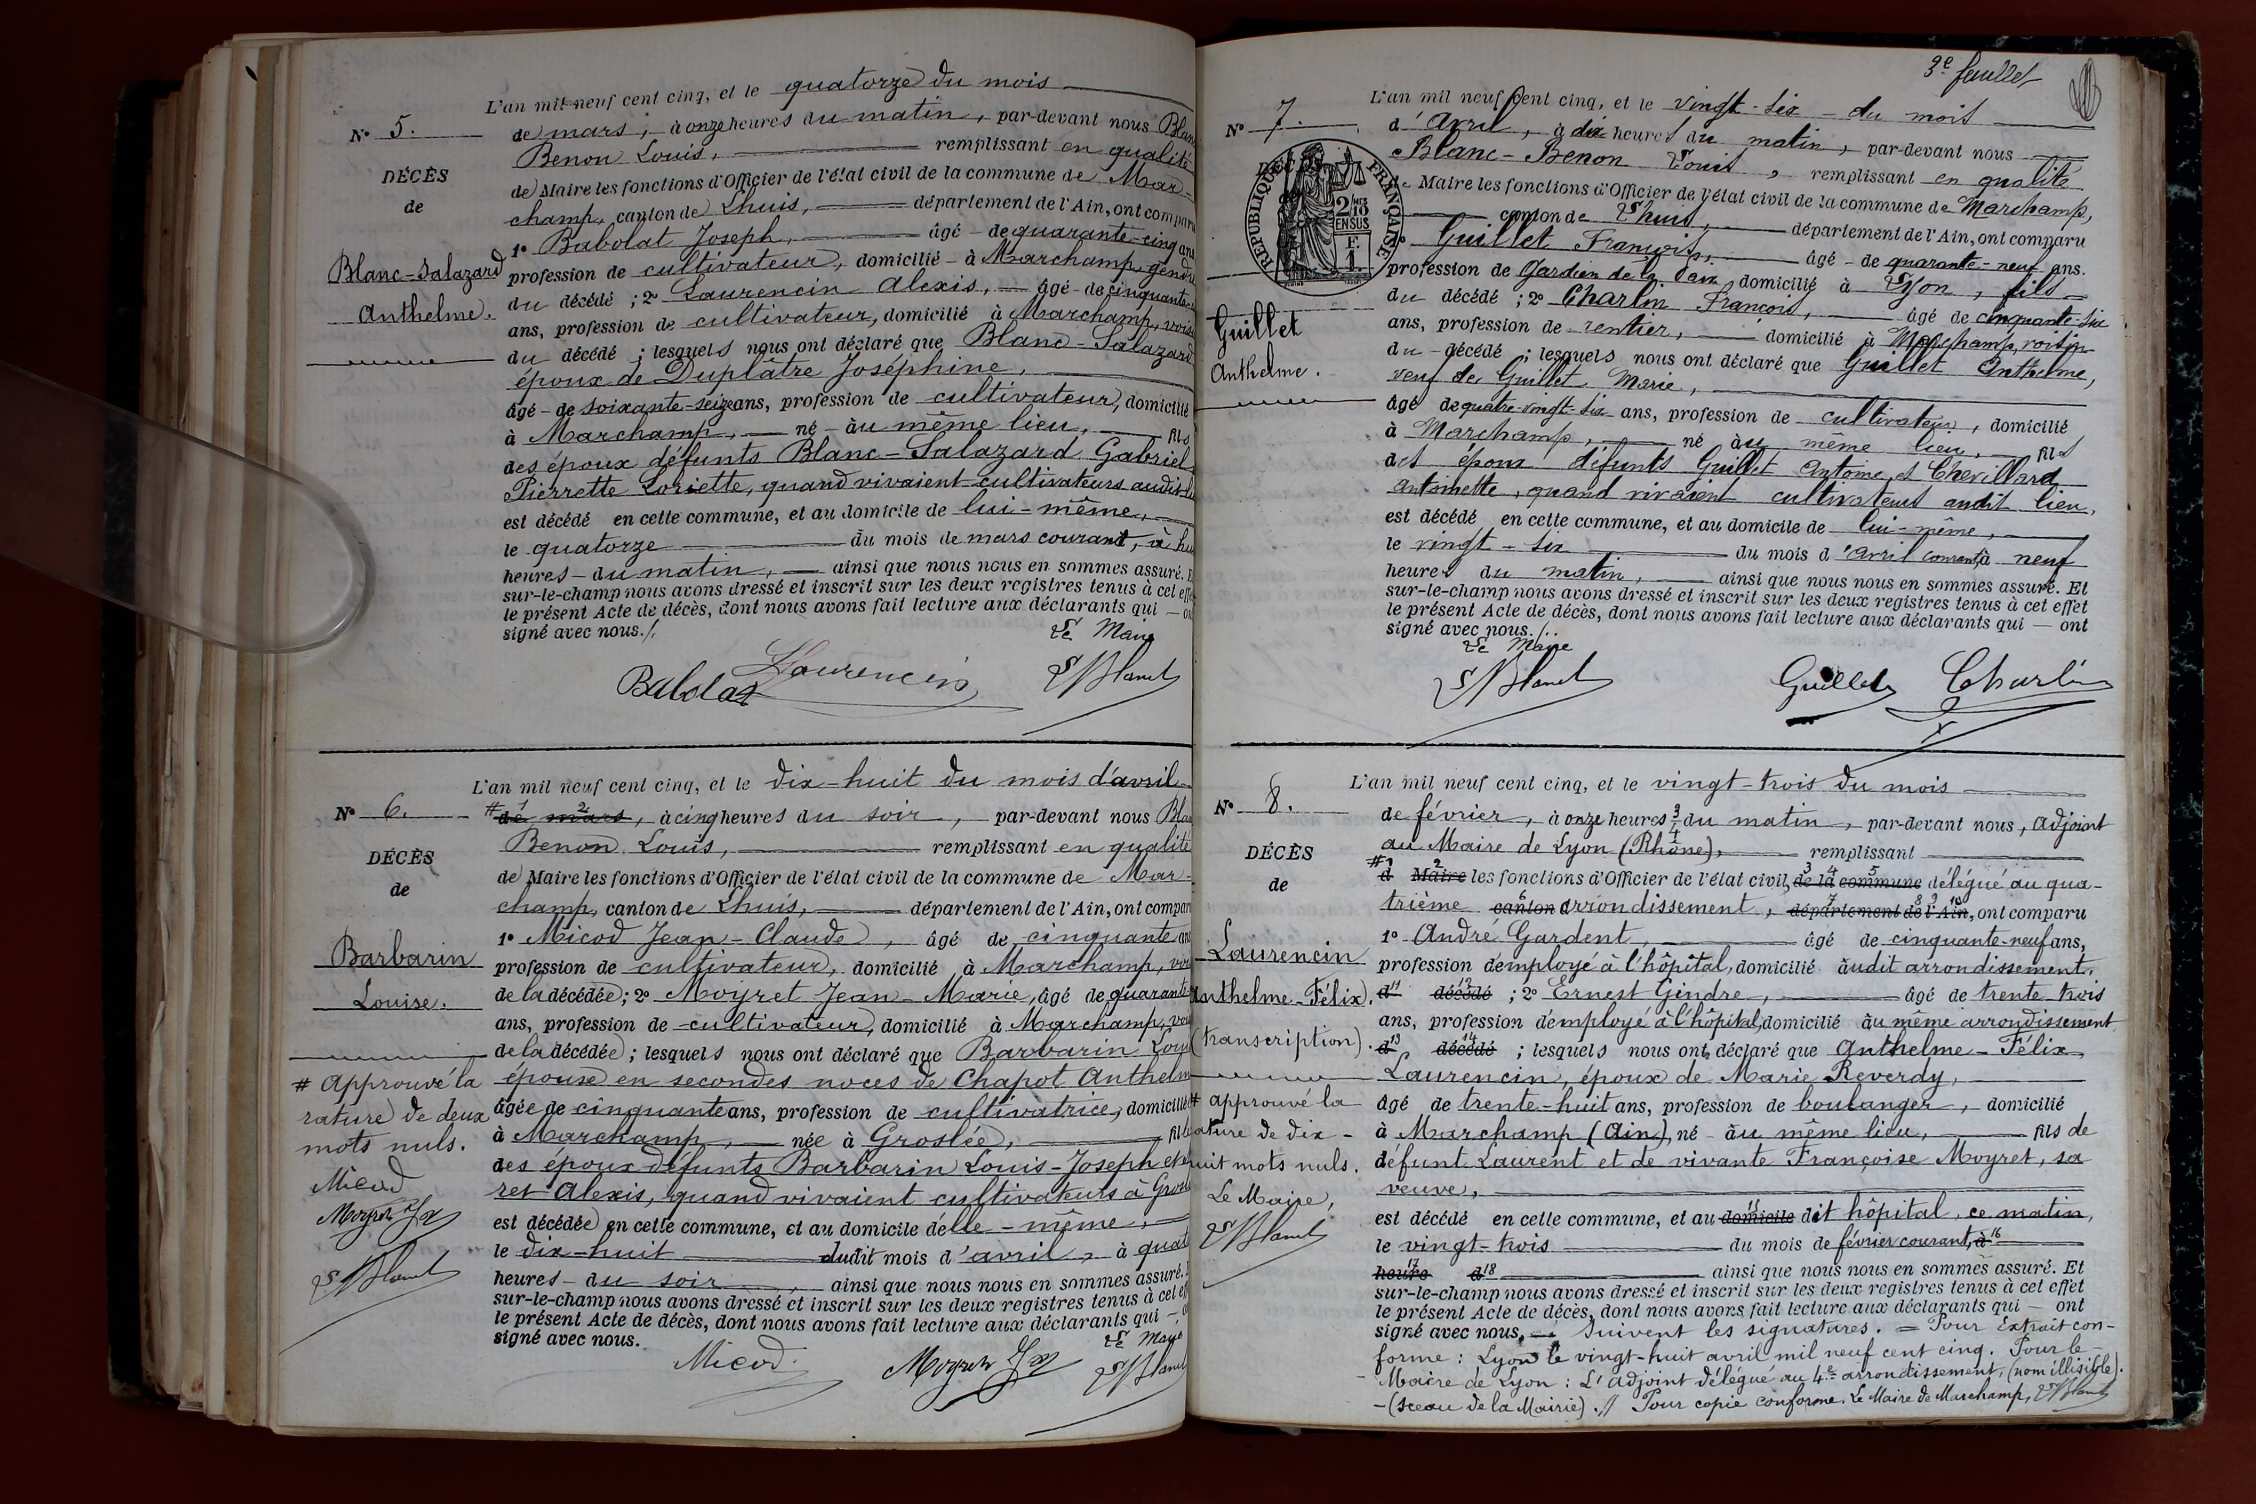 N° 5.
DÉCÈS
de
Blanc-Salazard
Anthelme.
L'an mil neuf cent cinq, et le quatorze du mois
de mars, à onze heures du matin, par-devant nous Blanc
Benon Louis, remplissant en qualité
de Maire les fonctions d'Officier de l'état civil de la commune de Mar-
champ, canton de Lhuis, département de l'Ain, ont comparu
1° Babolat Joseph, âgé de quarante-cinq ans
profession de cultivateur, domicilié à Marchamp, gendre
du décédé ; 2° Laurencin Alexis, âgé de cinquante-
ans, profession de cultivateur, domicilié à Marchamp, voisin
du décédé ; lesquels nous ont déclaré que Blanc-Salazard
époux de Duplâtre Joséphine,
âgé de soixante-seize ans, profession de cultivateur, domicilié
à Marchamp, né au même lieu, fils
des époux défunts Blanc-Salazard Gabriel
Pierrette Loriette, quand vivaient cultivateurs audit
est décédé en cette commune, et au domicile de lui-même,
le quatorze du mois de mars courant, à hu
heures du matin, ainsi que nous nous en sommes assuré. E
sur-le-champ nous avons dressé et inscrit sur les deux registres tenus à cet effe
le présent Acte de décès, dont nous avons fait lecture aux déclarants qui — on
signé avec nous./.
Le Maire
Babolat Laurencin LBlanc
N° 6.
DÉCÈS
de
Barbarin
Louise.
# Approuvé la
rature de deux
mots nuls.
Micod
Moyret JM
LBlanc
L'an mil neuf cent cinq, et le dix-huit du mois d'avril
# de 1 mars 2, à cinq heures du soir, par-devant nous Blan
Benon Louis, remplissant en qualité
de Maire les fonctions d'Officier de l'état civil de la commune de Mar-
champ, canton de Lhuis, département de l'Ain, ont compar
1° Micod Jean-Claude, âgé de cinquante ans
profession de cultivateur, domicilié à Marchamp, voi
de la décédée ; 2° Moyret Jean-Marie, âgé de quarante
ans, profession de cultivateur, domicilié à Marchamp, voi
de la décédée ; lesquels nous ont déclaré que Barbarin Loui
épouse en secondes noces de Chapot Anthelm
âgée de cinquante ans, profession de cultivatrice, domicilié
à Marchamp, née à Groslée, fille
des époux défunts Barbarin Louis-Joseph et
ret Alexis, quand vivaient cultivateurs à Gros
est décédée en cette commune, et au domicile d'elle-même,
le dix-huit dudit mois d'avril, à quat
heures du soir, ainsi que nous nous en sommes assuré.
sur-le-champ nous avons dressé et inscrit sur les deux registres tenus à cet eff
le présent Acte de décès, dont nous avons fait lecture aux déclarants qui —
signé avec nous.
Le Maire
Micod Moyret JM LBlanc
3e feuillet
N° 7.
RÉPUBLIQUE FRANÇAISE
2/10 EN SUS
F.
1.
Guillet
Anthelme.
L'an mil neuf cent cinq, et le vingt-six du mois
d'avril, à dix heures du matin, par-devant nous
Blanc-Benon Louis, remplissant en qualité
de Maire les fonctions d'Officier de l'état civil de la commune de Marchamp,
canton de Lhuis, département de l'Ain, ont comparu
Guillet François, âgé de quarante-neuf ans.
profession de Gardien de la Paix domicilié à Lyon, fils
du décédé ; 2° Charlin François, âgé de cinquante-six
ans, profession de rentier, domicilié à Marchamp, voisin
du décédé ; lesquels nous ont déclaré que Guillet Anthelme,
veuf de Guillet Marie,
âgé de quatre-vingt-six ans, profession de cultivateur, domicilié
à Marchamp, né au même lieu, fils
des époux défunts Guillet Antoine et Chevillard
Antoinette, quand vivaient cultivateurs audit lieu,
est décédé en cette commune, et au domicile de lui-même,
le vingt-six du mois d'avril courant, à neuf
heures du matin, ainsi que nous nous en sommes assuré. Et
sur-le-champ nous avons dressé et inscrit sur les deux registres tenus à cet effet
le présent Acte de décès, dont nous avons fait lecture aux déclarants qui — ont
signé avec nous./..
Le Maire
LBlanc Guillet Charlin
N° 8.
DÉCÈS
de
Laurencin
Anthelme-Félix.
(transcription).
# approuvé la
ature de dix-
uit mots nuls.
Le Maire,
LBlanc
L'an mil neuf cent cinq, et le vingt-trois du mois
de février, à onze heures 3/4 du matin, par-devant nous, adjoint
au Maire de Lyon (Rhône), remplissant
# d 1 Maire 2 les fonctions d'Officier de l'état civil, de 3 la 4 commune 5 délégué au qua-
trième canton 6 arrondissement, département 7 de 8 l' 9 Ain 10, ont comparu
1° André Gardent, âgé de cinquante-neuf ans,
profession d'employé à l'hôpital, domicilié audit arrondissement.
d 11 décédé 12 ; 2° Ernest Gendre, âgé de trente trois
ans, profession d'employé à l'hôpital, domicilié au même arrondissement
d 13 décédé 14 ; lesquels nous ont déclaré que Anthelme-Félix
Laurencin, époux de Marie Reverdy,
âgé de trente-huit ans, profession de boulanger, domicilié
à Marchamp (Ain), né au même lieu, fils de
défunt Laurent et de vivante Françoise Moyret, sa
veuve,
est décédé en cette commune, et au domicile 15 dit hôpital, ce matin,
le vingt-trois du mois de février courant, à 16
heure 17 d 18 ainsi que nous nous en sommes assuré. Et
sur-le-champ nous avons dressé et inscrit sur les deux registres tenus à cet effet
le présent Acte de décès, dont nous avons fait lecture aux déclarants qui — ont
signé avec nous. — Suivent les signatures. = Pour Extrait con-
forme : Lyon le vingt-huit avril mil neuf cent cinq. Pour le
Maire de Lyon : L'adjoint délégué au 4e arrondissement, (nom illisible).
-(sceau de la Mairie).// Pour copie conforme. Le Maire de Marchamp, LBlanc